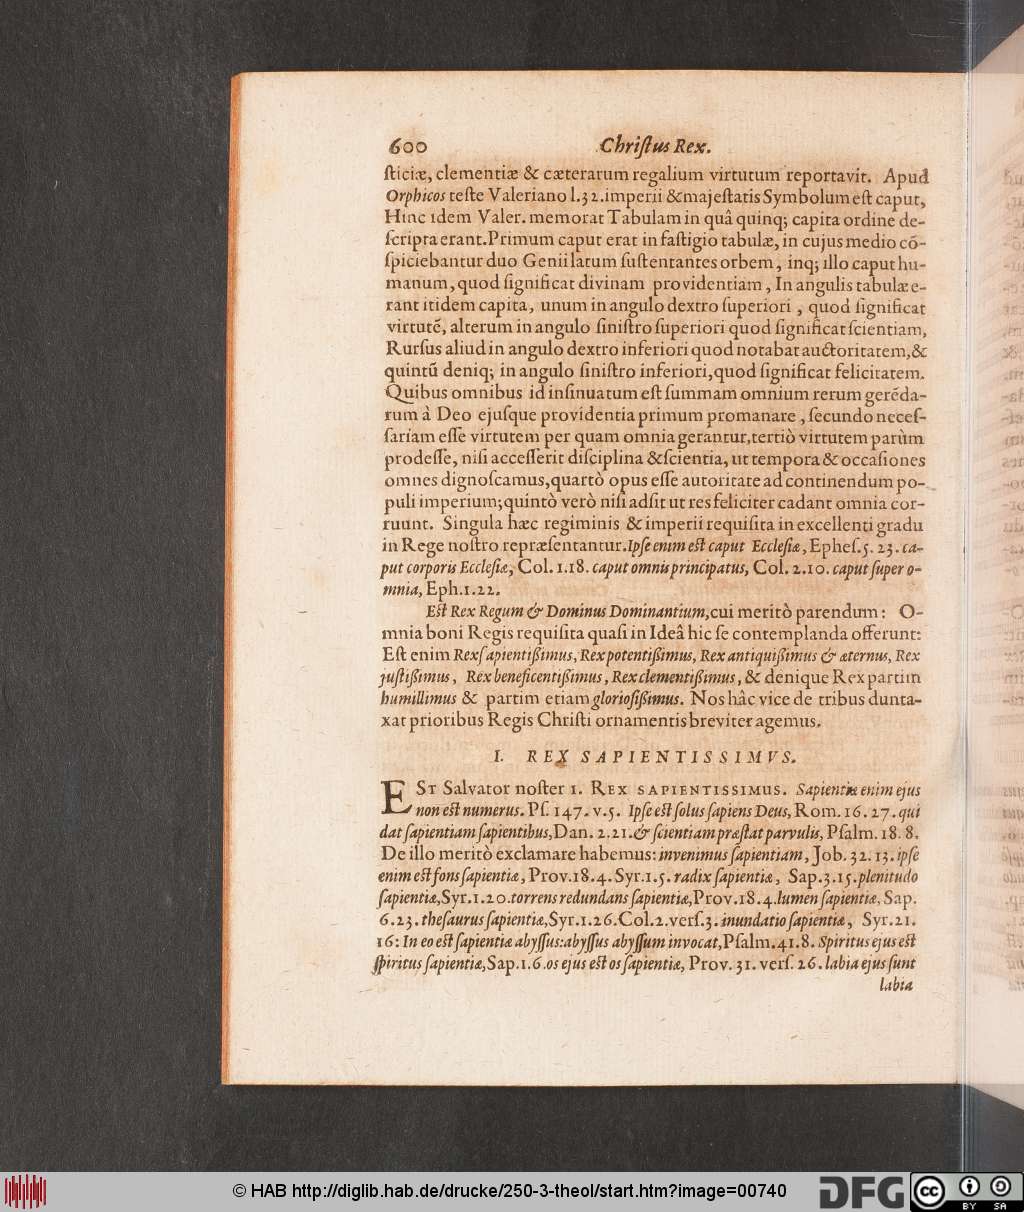 600 Chriſtus Rex.
ſticiæ, clementiæ & cæterarum regalium virtutum reportavit. Apud
Orphicos teſte Valeriano l.32.imperii & majeſtatis Symbolum eſt caput,
Hinc idem Valer. memorat Tabulam in quâ quinq; capita ordine de-
ſcripta erant. Primum caput erat in faſtigio tabulæ, in cujus medio cō-
ſpiciebantur duo Genii latum ſuſtentantes orbem, inq; illo caput hu-
manum, quod ſignificat divinam providentiam, In angulis tabulæ e-
rant itidem capita, unum in angulo dextro ſuperiori, quod ſignificat
virtutē, alterum in angulo ſiniſtro ſuperiori quod ſignificat ſcientiam,
Rurſus aliud in angulo dextro inferiori quod notabat auctoritatem, &
quintū deniq; in angulo ſiniſtro inferiori, quod ſignificat felicitatem.
Quibus omnibus id inſinuatum eſt ſummam omnium rerum gerēda-
rum à Deo ejuſque providentia primum promanare, ſecundo neceſ-
ſariam eſſe virtutem per quam omnia gerantur, tertiò virtutem parùm
prodeſſe, niſi acceſſerit diſciplina & ſcientia, ut tempora & occaſiones
omnes dignoſcamus, quartò opus eſſe autoritate ad continendum po-
puli imperium; quintò verò niſi adſit ut res feliciter cadant omnia cor-
ruunt. Singula hæc regiminis & imperii requiſita in excellenti gradu
in Rege noſtro repræſentantur. Ipſe enim eſt caput Eccleſiæ, Epheſ.5. 23. ca-
put corporis Eccleſiæ, Col. 1.18. caput omnis principatus, Col. 2.10. caput ſuper o-
mnia, Eph.1.22.
Eſt Rex Regum & Dominus Dominantium, cui meritò parendum: O-
mnia boni Regis requiſita quaſi in Ideâ hic ſe contemplanda offerunt:
Eſt enim Rex ſapientißimus, Rex potentißimus, Rex antiquißimus & æternus, Rex
juſtißimus, Rex beneficentißimus, Rex clementißimus, & denique Rex partim
humillimus & partim etiam glorioſißimus. Nos hâc vice de tribus dunta-
xat prioribus Regis Chriſti ornamentis breviter agemus.
I. REX SAPIENTISSIMVS.
EST Salvator noſter 1. REX SAPIENTISSIMUS. Sapientiæ enim ejus
non eſt numerus. Pſ. 147. v.5. Ipſe eſt ſolus ſapiens Deus, Rom. 16. 27. qui
dat ſapientiam ſapientibus, Dan. 2.21. & ſcientiam præſtat parvulis, Pſalm. 18. 8.
De illo meritò exclamare habemus: invenimus ſapientiam, Job. 32. 13. ipſe
enim eſt fons ſapientiæ, Prov.18.4. Syr.1.5. radix ſapientiæ, Sap.3.15. plenitudo
ſapientiæ, Syr.1.20. torrens redundans ſapientiæ, Prov.18.4. lumen ſapientiæ, Sap.
6.23. theſaurus ſapientiæ, Syr.1.26. Col.2. verſ.3. inundatio ſapientiæ, Syr.21.
16: In eo eſt ſapientiæ abyſſus: abyſſus abyſſum invocat, Pſalm.41.8. Spiritus ejus eſt
ſpiritus ſapientiæ, Sap.1.6. os ejus eſt os ſapientiæ, Prov. 31. verſ. 26. labia ejus ſunt
labia
© HAB http://diglib.hab.de/drucke/250-3-theol/start.htm?image=00740
DFG
cc BY SA